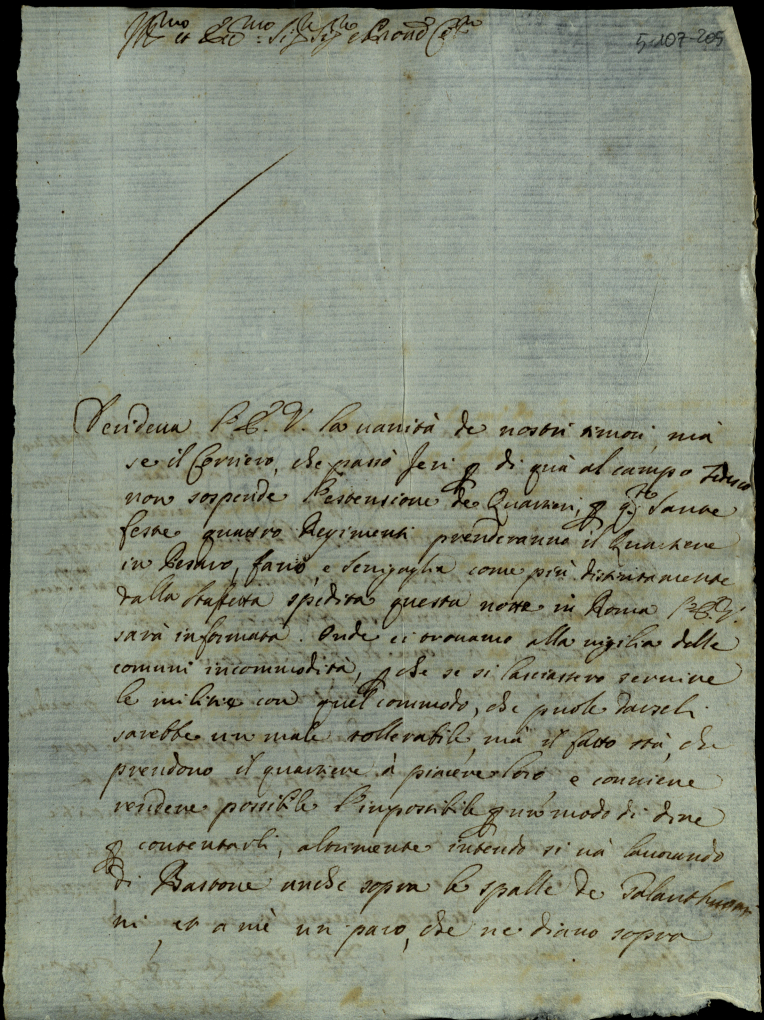 Ill.mo et Ecc.mo Sig.re Sig.re e Pron.e Col.mo
5-107-209
Derideva l'E. V. la vanità de nostri timori, mà
se il Corriero, che passò Jeri p di quà al campo Tedesco
non sospende l'estensione de Quartieri, p q.te Sante
feste quattro Regimenti prenderanno il Quartiere
in Pesaro, fano e Senigaglia come più distintamente
dalla staffetta spedita questa notte in Roma l'E. V.
sarà informata. Onde ci troviamo alla vigilia delle
comuni incommodità, p che se si lasciassero servire
le milizie con quel commodo, che puole darseli
sarebbe un male tollerabile, mà il fatto stà, che
prendono il quartiere à piacere loro e conviene
rendere possibile l'impossibile p un modo di dire
p contentarli, altrimente intendo si và lavorando
di Bastone anche sopra le spalle de Galanthuomi
ni, et a mè un paro, che ne diano sopra